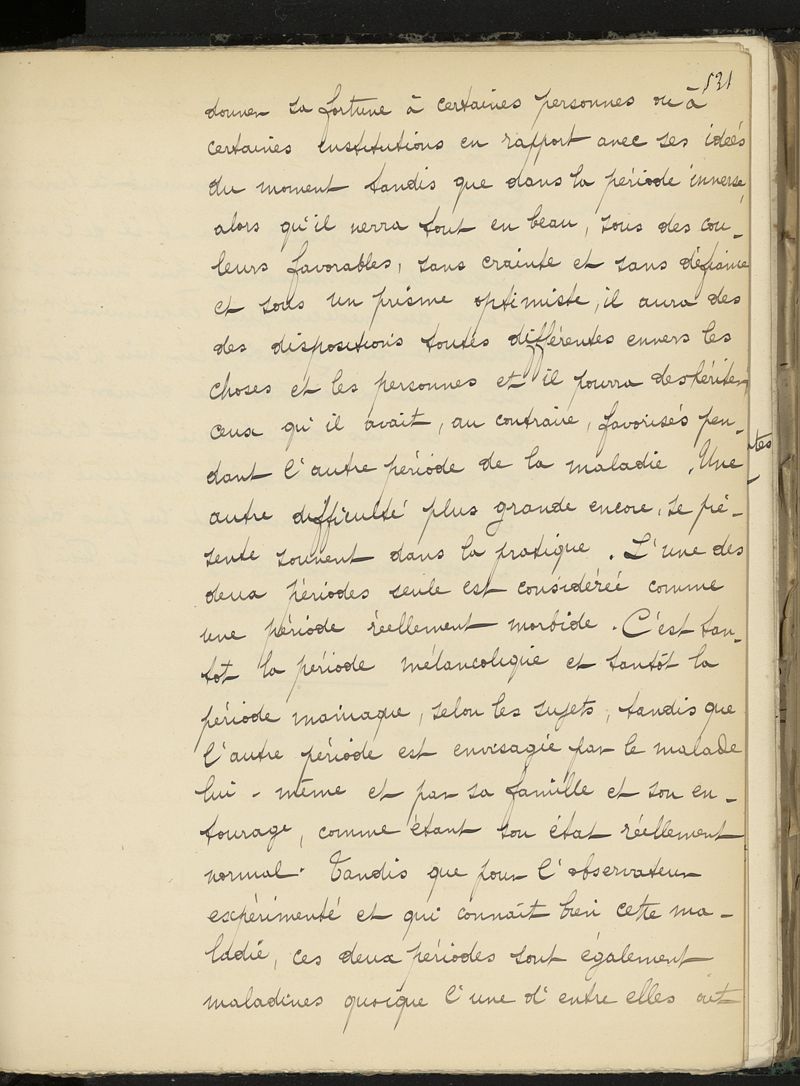 531
donner sa fortune à certaines personnes ou à
certaines institutions en rapport avec ses idées
du moment tandis que dans la période inverse,
alors qu'il verra tout en beau, sous des cou-
leurs favorables, sans crainte et sans défiance
et sous un prisme optimiste, il aura des
des dispositions toutes différentes envers les
choses et les personnes et il pourra deshériter
ceux qu'il avait, au contraire, favorisés pen-
dant l'autre période de la maladie. Une
autre difficulté plus grande encore, se pré-
sente souvent dans la pratique. L'une des
deux périodes seule est considérée comme
une période réellement morbide. C'est tan-
tôt la période mélancolique et tantôt la
période maniaque, selon les sujets, tandis que
l'autre période est envisagée par le malade
lui-même et par sa famille et son en-
tourage, comme étant son état réellement
normal. Tandis que pour l'observateur
expérimenté et qui connaît bien cette ma-
ladie, ces deux périodes sont également
maladives quoique l'une d'entre elles ait
tes